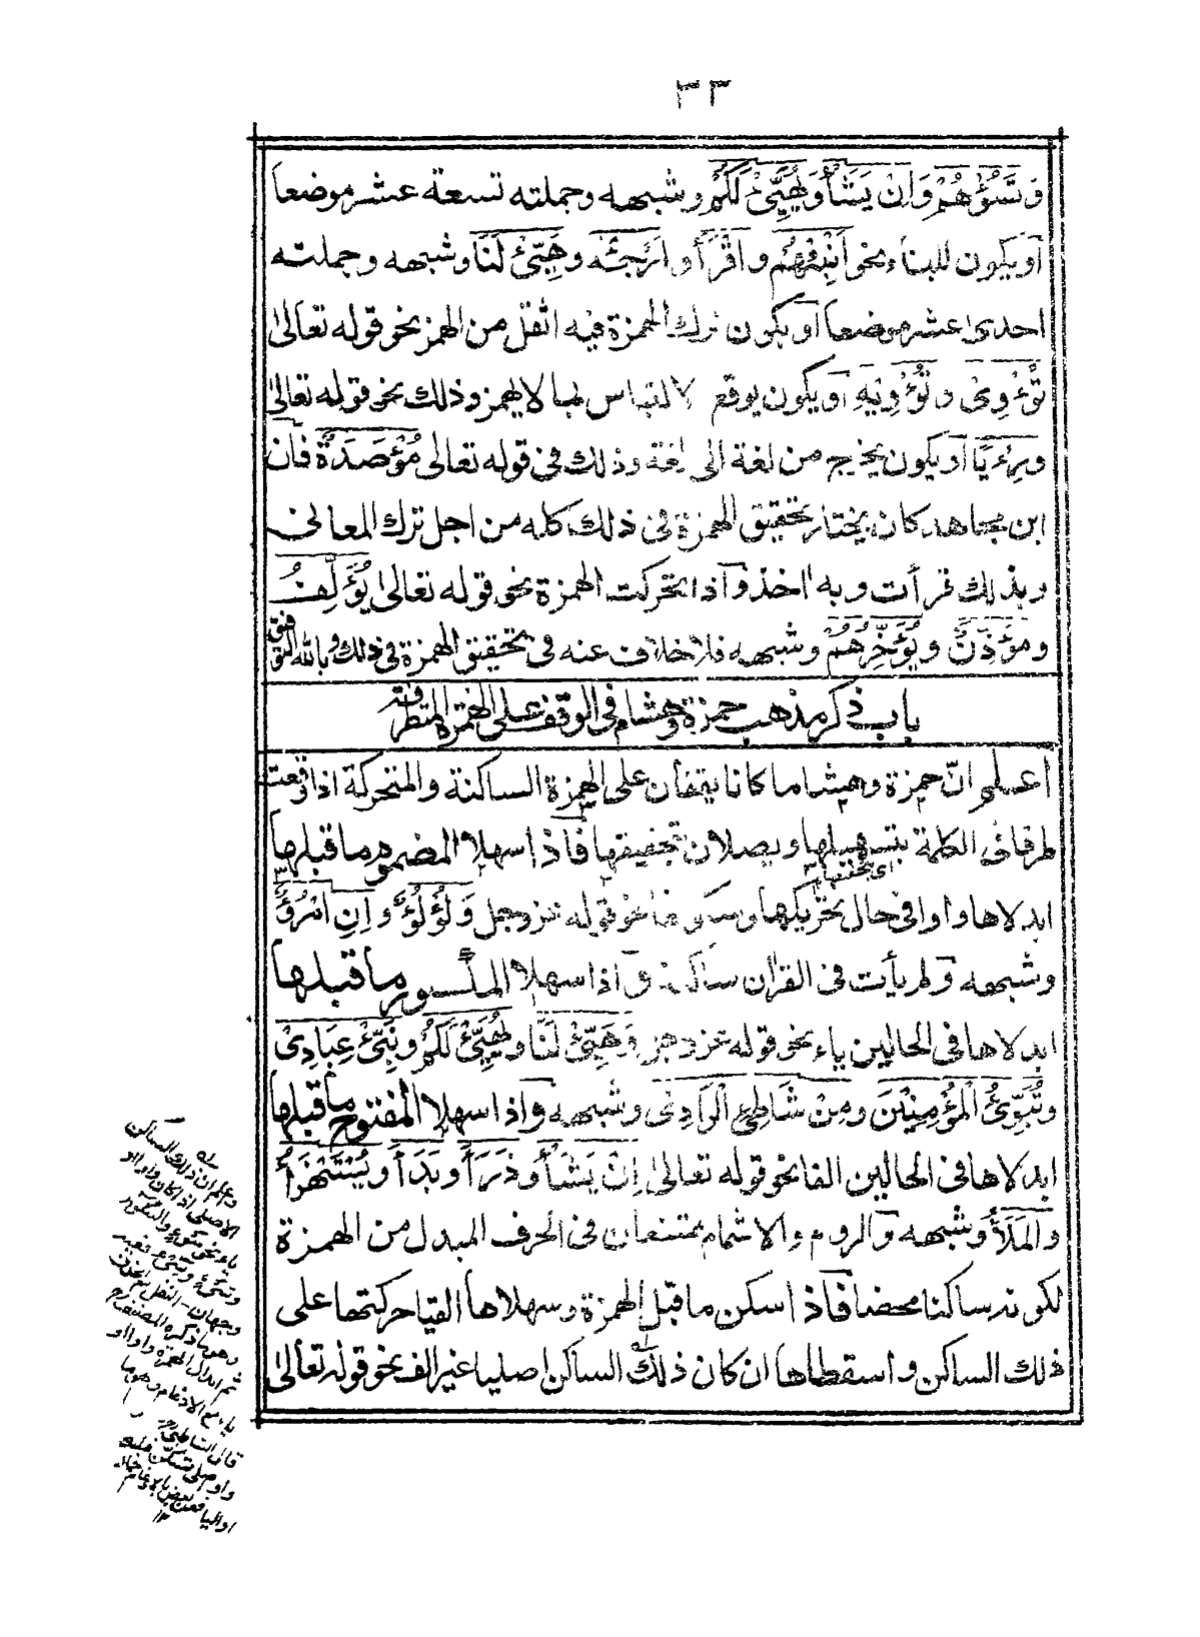 ٣٣
وَتَسُؤْهُمْ وَاِنْ يَشَأْ وَيُهَيِّئْ لَكُمْ وشبهه وجملته تسعة عشر موضعا
او يكون للبناء نحو اَنْبِئْهُمْ و اقْرَأْ و اَرْجِئْهُ وهَيِّئْ لَنَا وشبهه وجملته
احدى عشر موضعا او يكون ترك الهمزة فيه اثقل من الهمز نحو قوله تعالى
تُؤْوِىْ و تُؤْوِيْهِ او يكون يوقع الالتباس بما لا يهمز وذلك نحو قوله تعالى
ورِءْيًا او يكون يخرج من لغة الى لغة وذلك فى قوله تعالى مُؤْصَدَةٌ فان
ابن مجاهد كان يختار تحقيق الهمزة فى ذلك كله من اجل ترك المعانى
وبذلك قرأت وبه اخذ و اذا تحركت الهمزة نحو قوله تعالى يُؤَلِّفُ
ومُؤَذِّنٌ و يُؤَخِّرُهُمْ وشبهه فلا خلاف عنه فى تحقيق الهمزة فى ذلك وبالله التوفيق
باب ذكر مذهب حمزة وهشام فى الوقف على الهمزة المتطرفة
اعلم انّ حمزة وهشاما كانا يقفان على الهمزة الساكنة والمتحركة اذا وقعت
طرفا فى الكلمة بتسهيلها ويصلان بتحقيقها فاذا سهلا المضموم ما قبلها
اى تخفيفها
ابدلاها واوا فى حال تحريكها وسكونها نحو قوله عز وجل وَلُؤْلُؤٌ و اِنِ امْرُؤٌ
وشبهه ولم يأت فى القران ساكنة و اذا سهلا المكسور ما قبلها
ابدلاها فى الحالين ياء نحو قوله عز وجل وَهَيِّئْ لَنَا و يُهَيِّئْ لَكُمْ و نَبِّئْ عِبَادِىْ
و تُبَوِّئُ الْمُؤْمِنِيْنَ و مِنْ شَاطِئِ الْوَادِىْ وشبهه و اذا سهلا المفتوح ما قبلها
ابدلاها فى الحالين الفا نحو قوله تعالى اِنْ يَشَأْ و ذَرَأَ و بَدَأَ و يُسْتَهْزَأُ
و الْمَلَأُ وشبهه والروم والاشمام يمتنعان فى الحرف المبدل من الهمزة
لكونه ساكنا محضا فاذا سكن ما قبل الهمزة وسهلاها القيا حركتها على
ذلك الساكن و اسقطاها ان كان ذلك الساكن اصليا غير الف نحو قوله تعالى
سله
واعلم ان ذلك الساكن
الاصلى اذا كان واوا او
ياء نحو
وجهان النقل
وهو ما ذكره المصنف
ثم ابدال الهمزة واوا او
ياء مع الادغام وهو ما
قال الشاطبى
١٢